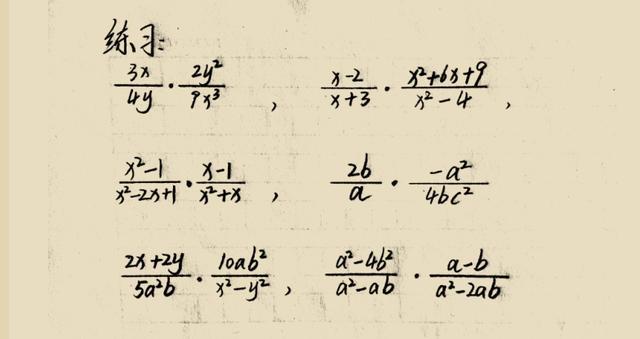 练习:
3x/4y · 2y²/9x³ , x-2/x+3 · x²+6x+9/x²-4 ,
x²-1/x²-2x+1 · x-1/x²+x , 2b/a · -a²/4bc²
2x+2y/5a²b · 10ab²/x²-y² , a²-4b²/a²-ab · a-b/a²-2ab